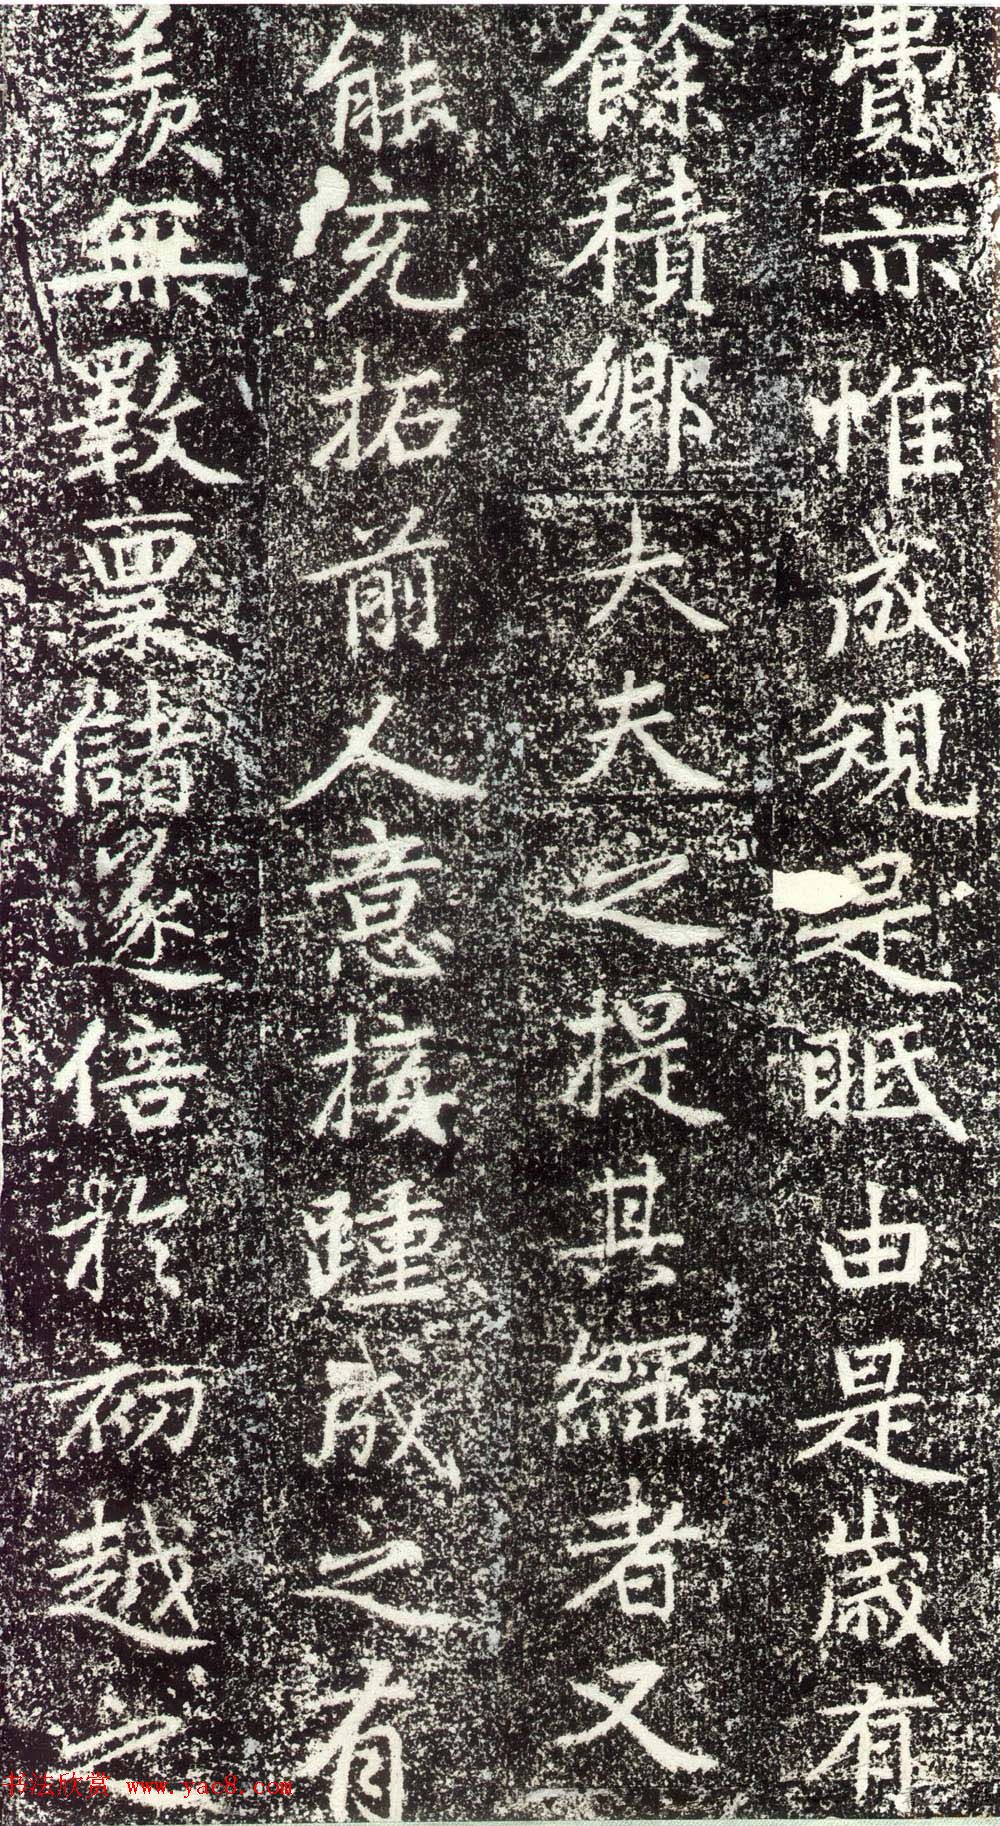 費亦惟成規是眡由是歲有
餘積鄉大夫之提其綱者又
能充拓前人意接踵成之有
羨無斁稟儲遂倍於初越二
书法欣赏 www.yac8.com